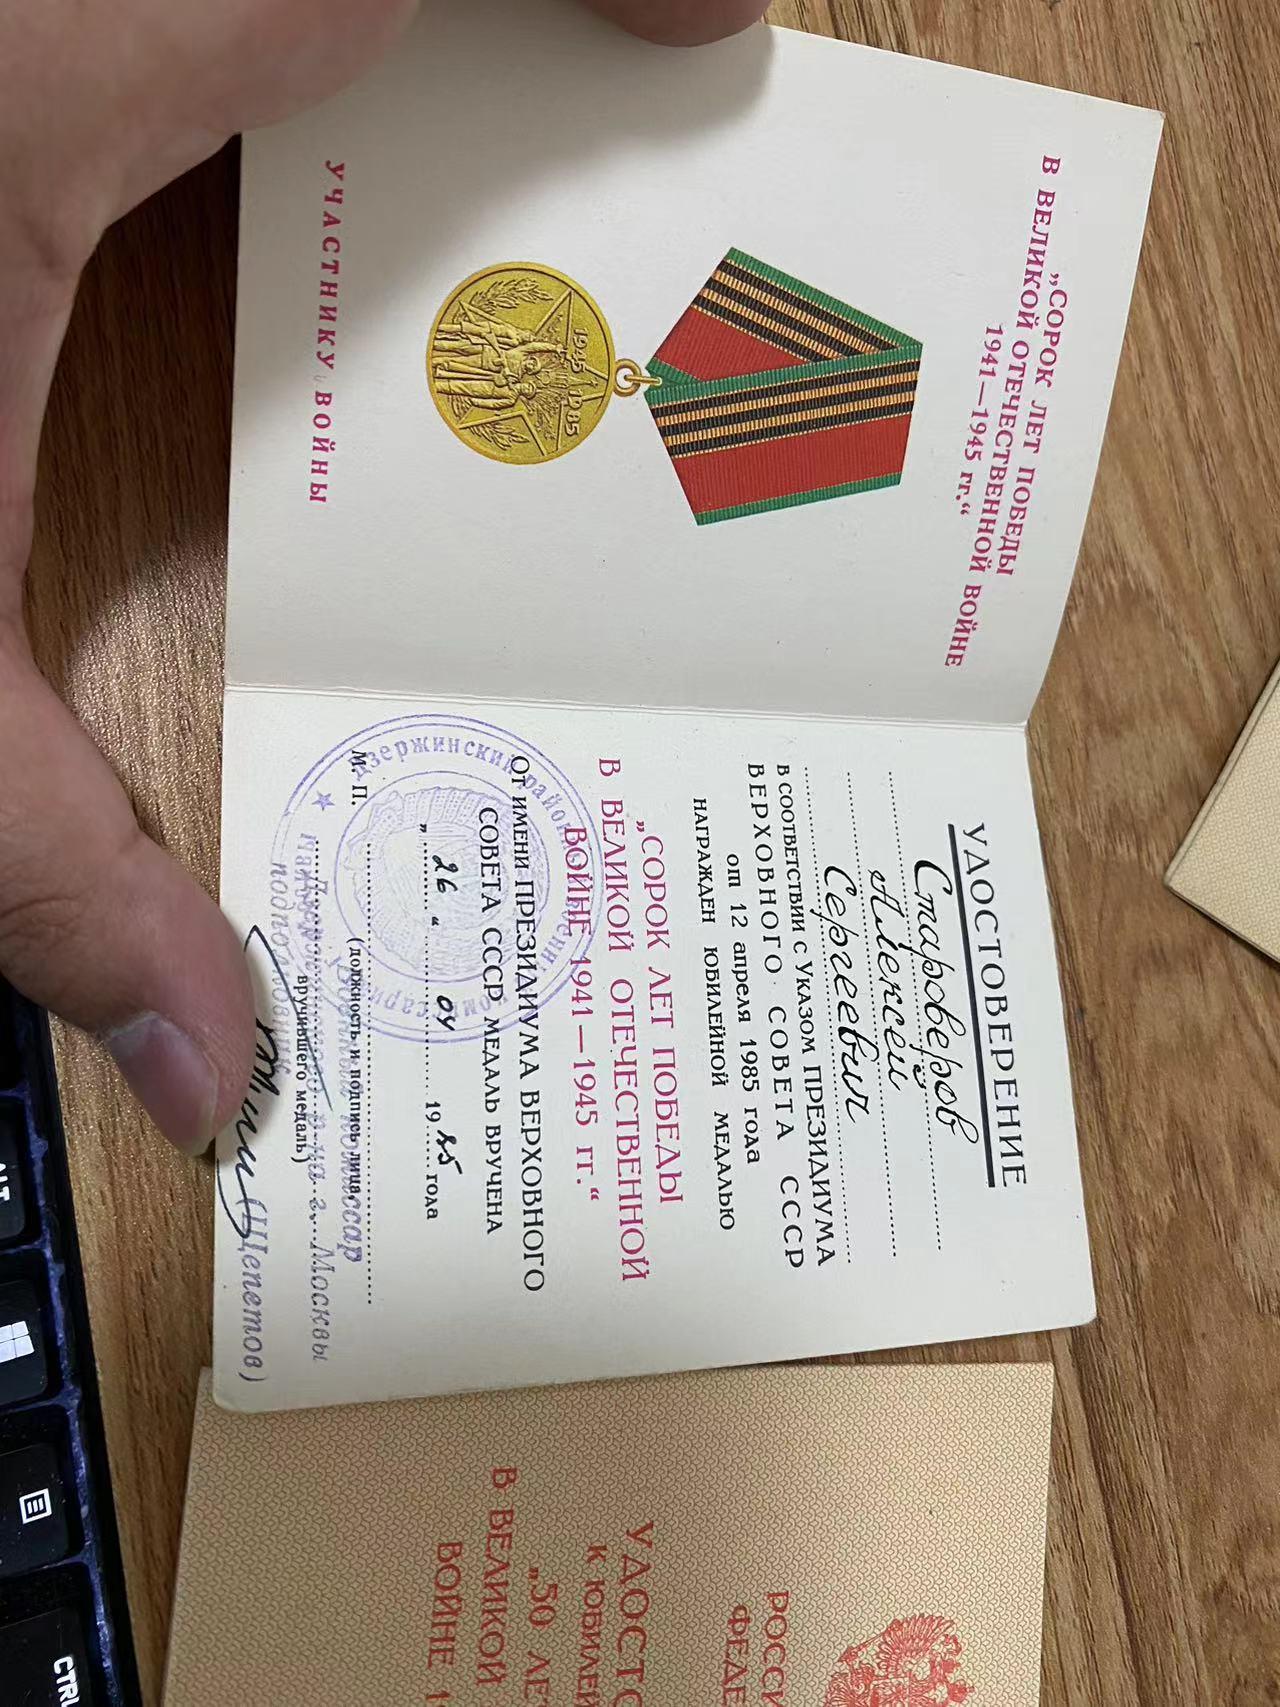 „СОРОК ЛЕТ ПОБЕДЫ
В ВЕЛИКОЙ ОТЕЧЕСТВЕННОЙ ВОЙНЕ
1941—1945 гг.“
1945 1985
УЧАСТНИКУ ВОЙНЫ
УДОСТОВЕРЕНИЕ
Староверов
Алексей
Сергеевич
В СООТВЕТСТВИИ С УКАЗОМ ПРЕЗИДИУМА
ВЕРХОВНОГО СОВЕТА СССР
от 12 апреля 1985 года
НАГРАЖДЕН ЮБИЛЕЙНОЙ МЕДАЛЬЮ
„СОРОК ЛЕТ ПОБЕДЫ
В ВЕЛИКОЙ ОТЕЧЕСТВЕННОЙ
ВОЙНЕ 1941—1945 гг.“
ОТ ИМЕНИ ПРЕЗИДИУМА ВЕРХОВНОГО
СОВЕТА СССР МЕДАЛЬ ВРУЧЕНА
„ 26 “ 04 1985 года
М. П.
(должность и подпись лица,
вручившего медаль)
Дзержинский район
р-на г. Москвы
подполковник
(Щепетов)
РОССИ
ФЕДЕ
УДОСТО
К ЮБИЛЕЙ
„50 ЛЕТ
В ВЕЛИКОЙ
ВОЙНЕ 1
ALT
CTRL